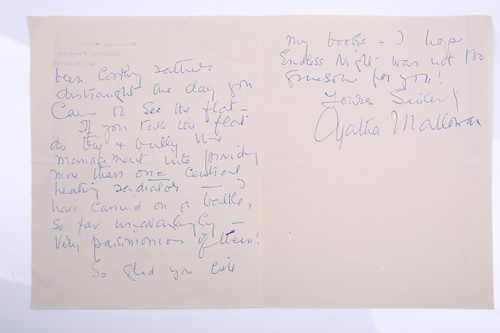 been looking rather
distraught the day you
came to see the flat –
If you take the flat
do try & bully the
management into providing
more than one central
heating radiator – I
have carried on a battle,
so far unavailingly –
Very parsimonious of them!
So glad you like
my books – I hope
Endless Night was not too
gruesome for you!
Yours Sincerely
Agatha Mallowan